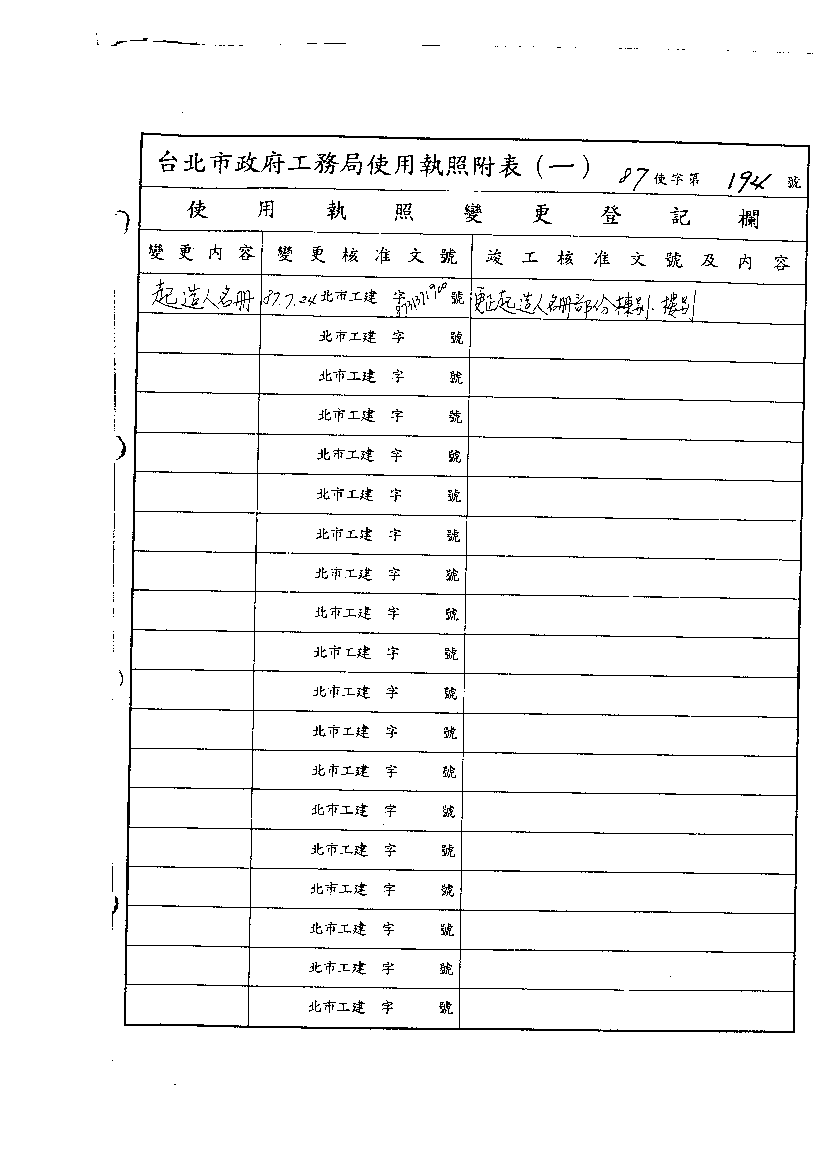 台北市政府工務局使用執照附表(一) 87使字第 194 號
使用執照變更登記欄
變更內容 變更核准文號 竣工核准文號及內容
起造人名冊 87.7.24 北市工建 字 號 更正起造人名冊部份棟別、樓別
北市工建 字 號
北市工建 字 號
北市工建 字 號
北市工建 字 號
北市工建 字 號
北市工建 字 號
北市工建 字 號
北市工建 字 號
北市工建 字 號
北市工建 字 號
北市工建 字 號
北市工建 字 號
北市工建 字 號
北市工建 字 號
北市工建 字 號
北市工建 字 號
北市工建 字 號
北市工建 字 號